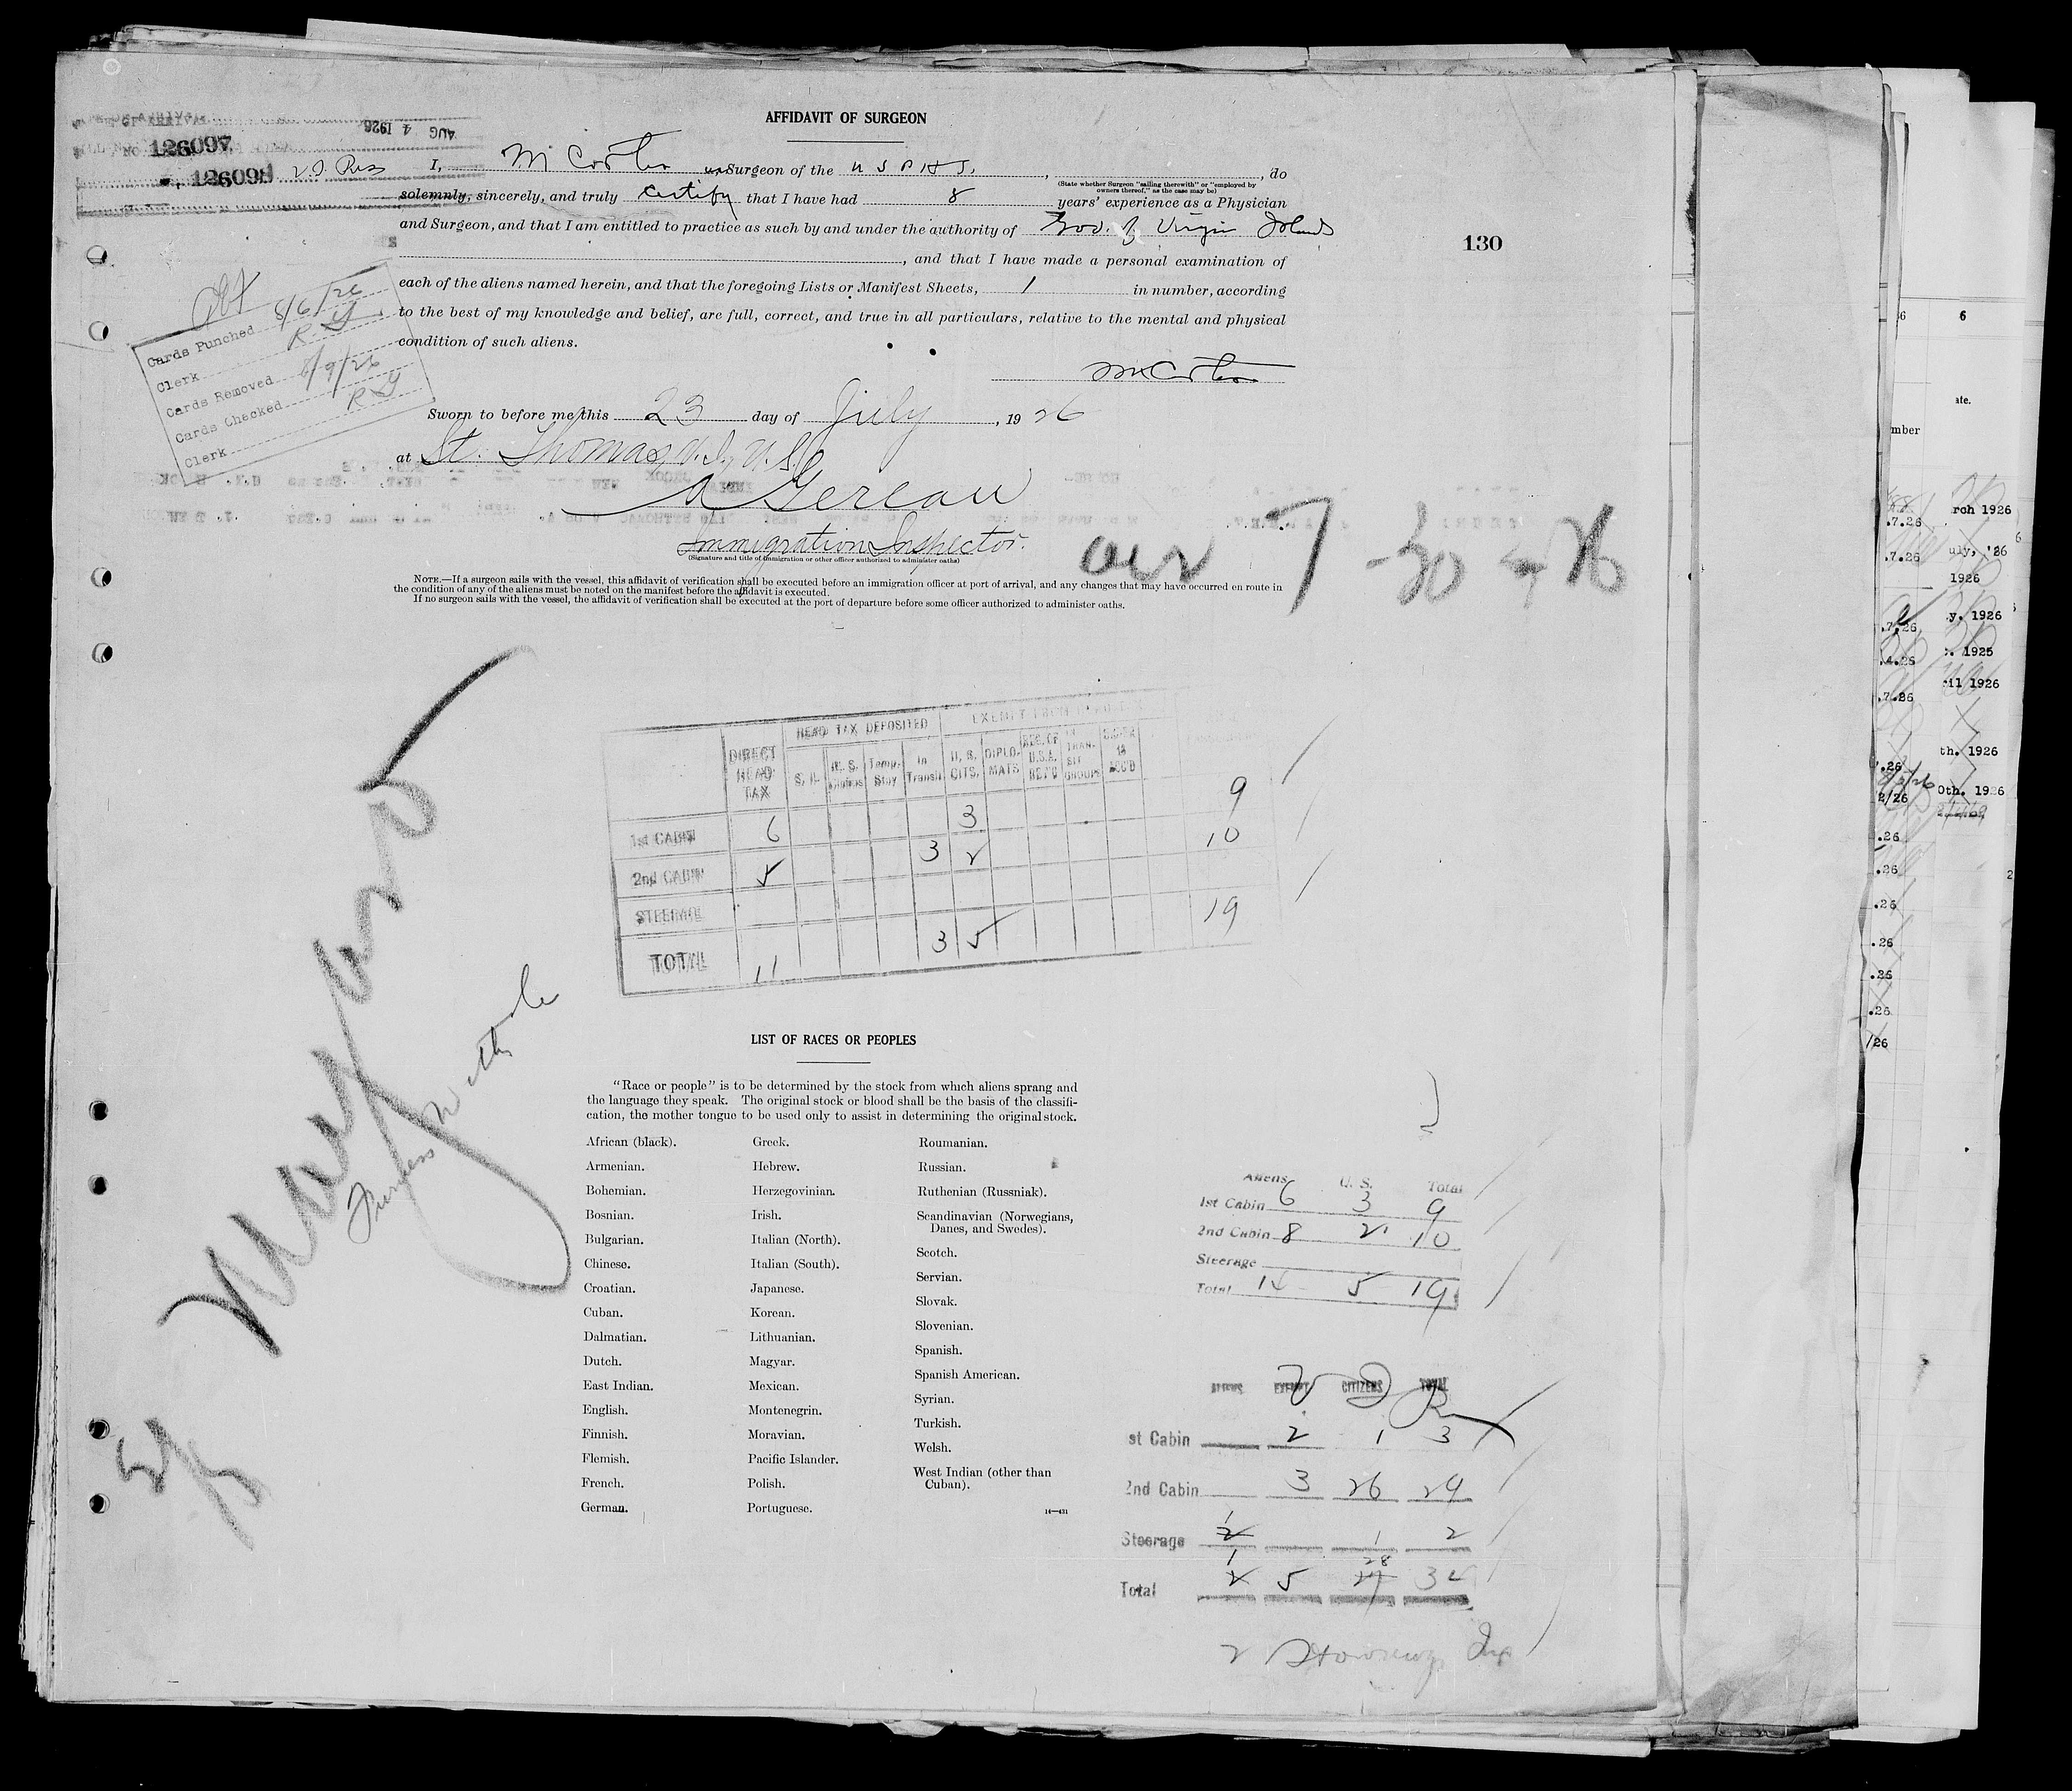 AFFIDAVIT OF SURGEON
AUG 4 1926
NO 126097
126098
I, Surgeon of the U S P H S. , , do
(State whether Surgeon "sailing therewith" or "employed by
owners thereof," as the case may be)
solemnly, sincerely, and truly certify that I have had 8 years' experience as a Physician
and Surgeon, and that I am entitled to practice as such by and under the authority of Gov. of Virgin Islands
, and that I have made a personal examination of
each of the aliens named herein, and that the foregoing Lists or Manifest Sheets, 1 in number, according
to the best of my knowledge and belief, are full, correct, and true in all particulars, relative to the mental and physical
condition of such aliens.
130
Cards Punched 8/6/26
Clerk R G
Cards Removed 8/9/26
Cards Checked R G
Clerk
Sworn to before me this 23 day of July , 19 26
at St. Thomas, V.I., U.S.
A Gereau
Immigration Inspector.
(Signature and title of immigration or other officer authorized to administer oaths)
7-30-26
NOTE.—If a surgeon sails with the vessel, this affidavit of verification shall be executed before an immigration officer at port of arrival, and any changes that may have occurred en route in
the condition of any of the aliens must be noted on the manifest before the affidavit is executed.
If no surgeon sails with the vessel, the affidavit of verification shall be executed at the port of departure before some officer authorized to administer oaths.
DIRECT HEAD TAX
HEAD TAX DEPOSITED
S. I.
Temp. Stay
In Transit
U. S. CITS.
DIPLO- MATS
RES. OF U.S.A. RET'D
IN TRAN- SIT GROUPS
1st CABIN 6 3 9
2nd CABIN 5 3 2 10
STEERAGE
TOTAL 11 3 5 19
Furness Withy
LIST OF RACES OR PEOPLES
"Race or people" is to be determined by the stock from which aliens sprang and
the language they speak. The original stock or blood shall be the basis of the classifi-
cation, the mother tongue to be used only to assist in determining the original stock.
African (black).
Armenian.
Bohemian.
Bosnian.
Bulgarian.
Chinese.
Croatian.
Cuban.
Dalmatian.
Dutch.
East Indian.
English.
Finnish.
Flemish.
French.
German.
Greek.
Hebrew.
Herzegovinian.
Irish.
Italian (North).
Italian (South).
Japanese.
Korean.
Lithuanian.
Magyar.
Mexican.
Montenegrin.
Moravian.
Pacific Islander.
Polish.
Portuguese.
Roumanian.
Russian.
Ruthenian (Russniak).
Scandinavian (Norwegians,
Danes, and Swedes).
Scotch.
Servian.
Slovak.
Slovenian.
Spanish.
Spanish American.
Syrian.
Turkish.
Welsh.
West Indian (other than
Cuban).
14—431
Aliens U. S. Total
1st Cabin 6 3 9
2nd Cabin 8 2 10
Steerage
Total 14 5 19
ALIENS EXEMPT CITIZENS TOTAL
st Cabin 2 1 3
2nd Cabin 3 26 29
Steerage 1 1 2
Total 1 5 28 34
6
ate.
mber
rch 1926
.7.26
uly, '26
.7.26
1926
y. 1926
.7.26
. 1925
.4.26
il 1926
.7.26
th. 1926
.26
2/26
0th. 1926
.26
.26
.26
.26
.26
.26
/26